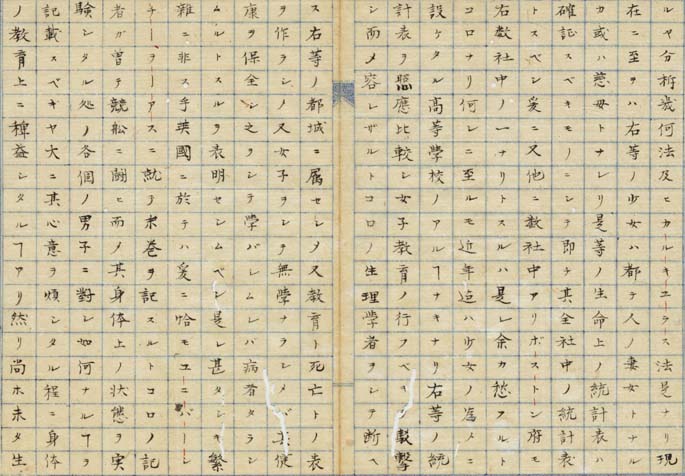 ルヤ分析幾何法及ヒカルキユラス法是ナリ現
在ニ至テハ右等ノ少女ハ都テ人ノ妻女トナル
カ或ハ慈母トナレリ是等ノ生命上ノ統計表ハ
確証スベキモノニシテ即チ其全社中ノ統計表
トスベシ爰ニ又他ニ数社中アリボーストン府モ
右数社中ノ一ナリトスルハ是レ余カ愁フルト
コロナリ何レニ至ルモ近年迄ハ少女ノ為メニ
設ケタル高等學校ノアルヿナキナリ右等ノ統
計表ヲ照應比較シ女子教育ノ行フベキ撃
シ而メ容レザルトコロノ生理学者ヲシテ断ヘ
ス右等ノ都城ニ属セシメ又教育ト死亡トノ表
ヲ作ラシメ又女子ヲシテ無學ナラシメバ其健
康ヲ保全シ之ヲシテ學バシムレバ病者タラシ
ムルトスルヲ表明セシムベシ是レ甚タシキ繁
雜ニ非ス乎英國ニ於テハ爰ニ恰モユニバーシ
チーアスニ就テ巻ヲ記スルトコロノ記
者ガ曽テ競船ニ闘ヒ而メ其身体上ノ状態ヲ実
験シタル処ノ各個ノ男子ニ對シ如何ナルヿヲ
記載スベキヤ大ニ其心意ヲ煩シタル程ニ身体
ノ教育上ニ稗益シタルヿアリ然リ尚ホ未タ生